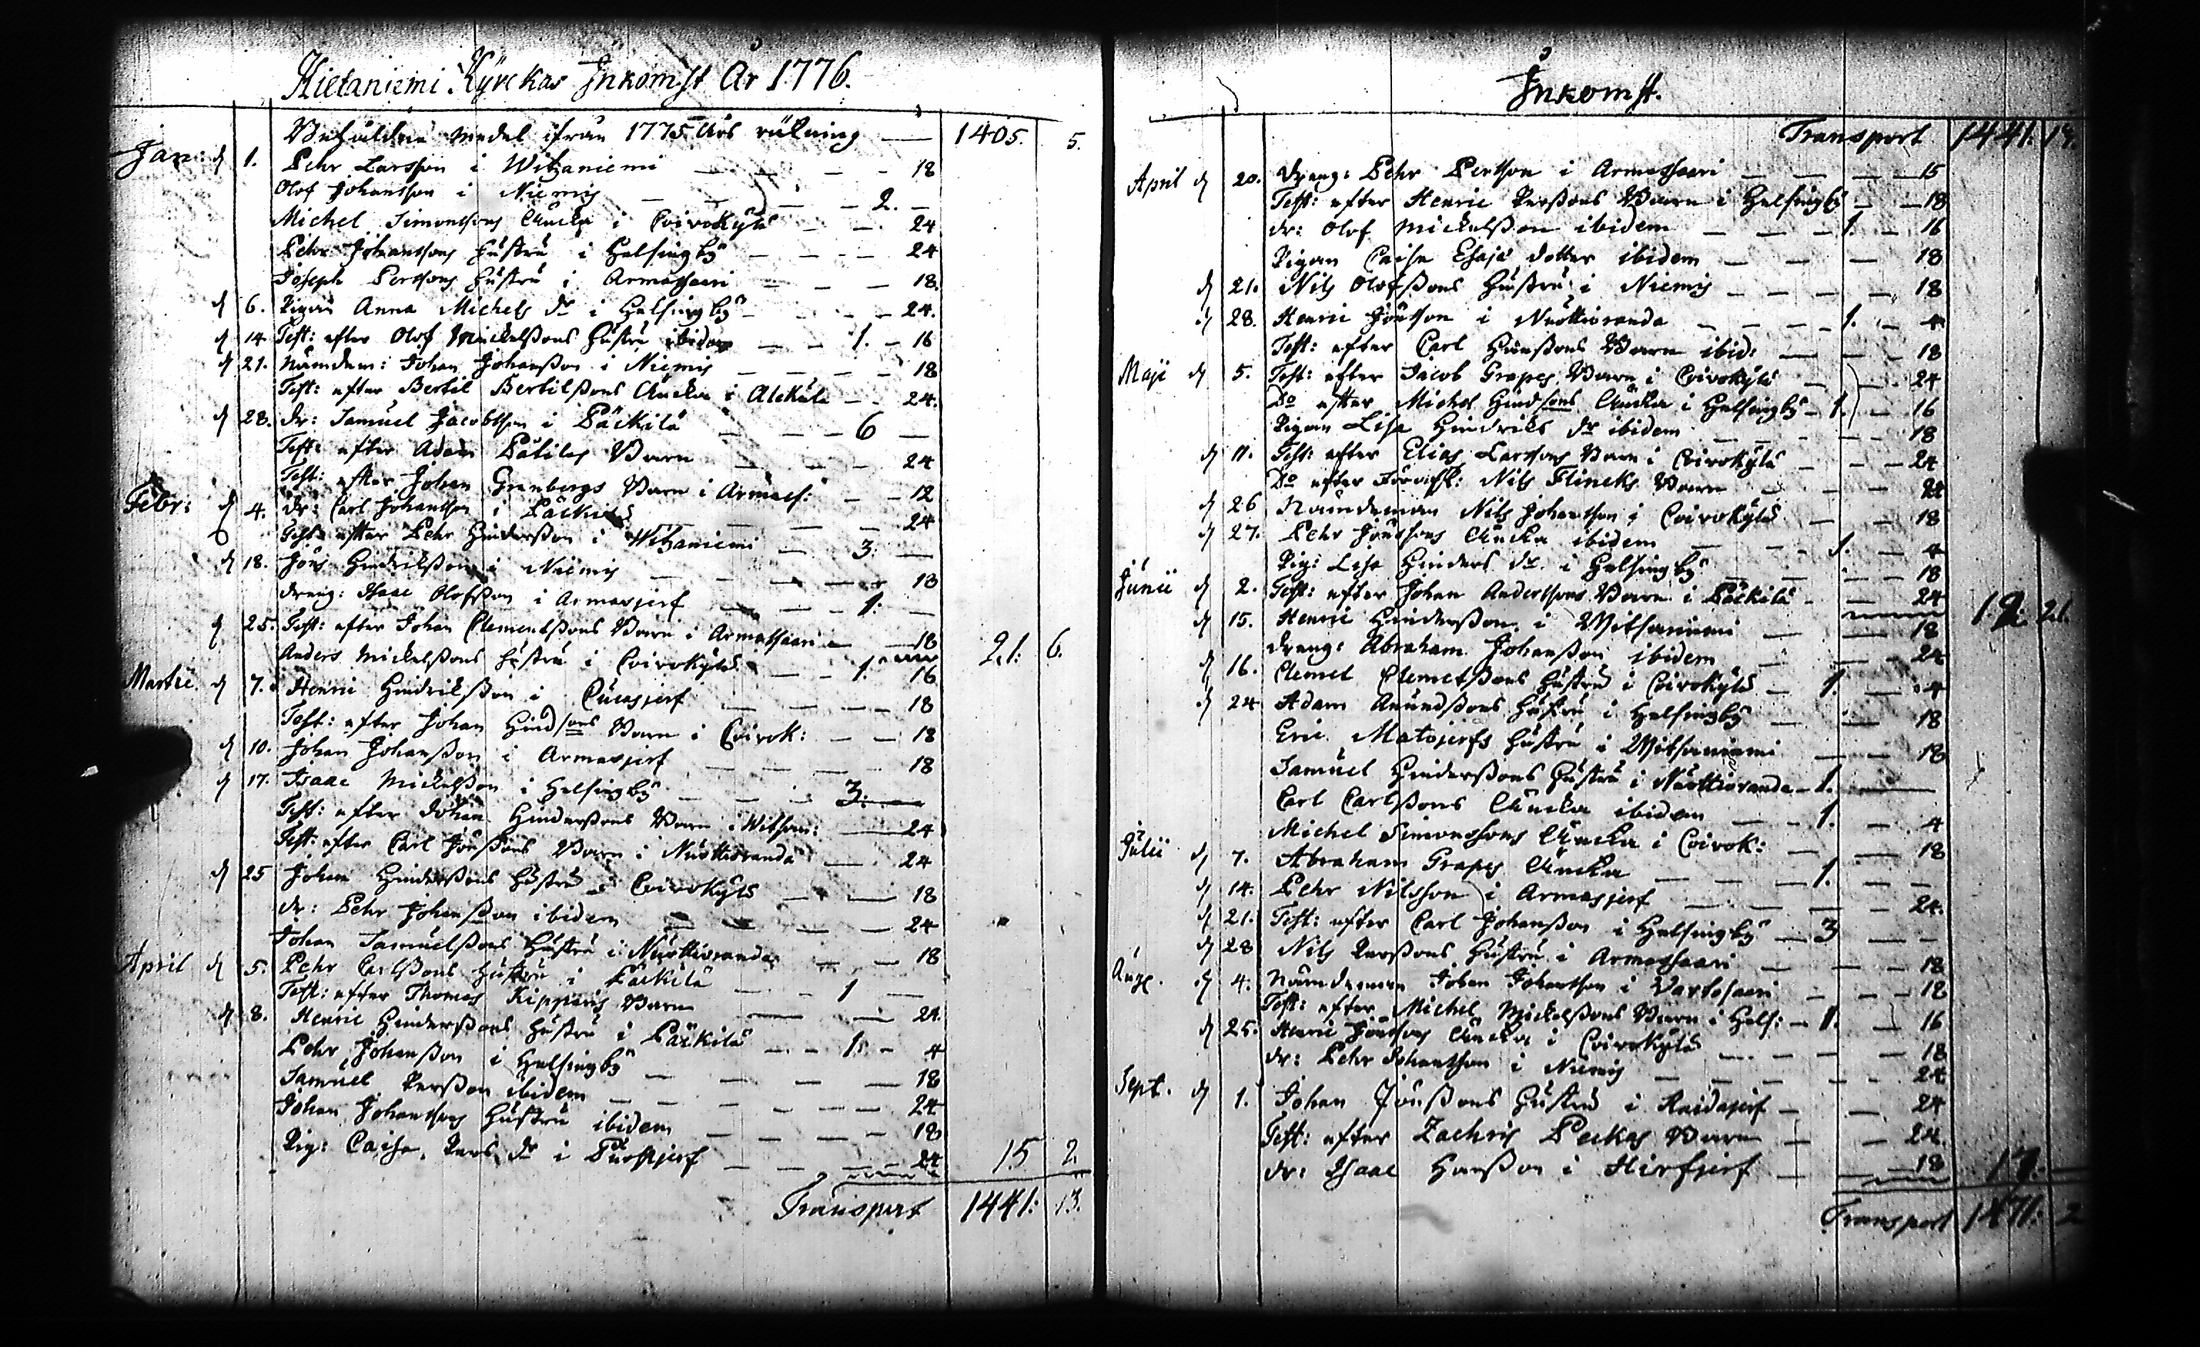 Hietaniemi Kyrckas Inkomst År 1776.
Behåldne medel ifrån 1775 Års räkning — 1405. 5.
Jan: d 1. Pehr Larsson i Witzaniemi — 18
Olof Johansson i Niemis — 2. —
Michel Simonssons Äncka i Coivokylä — 24
Pehr Johanssons hustru i Helsingby — 24
Joseph Perssons hustru i Armassaari — 18.
d 6. Pigan Anna Michels dr i Helsingby — 24.
d 14. Test: efter Olof Mickelssons hustru ibidem — 1. — 16
d 21. Nämdem: Johan Johansson i Niemis — 18
Test: efter Bertil Bertilssons Äncka i Alckula — 24.
d 28. dr: Samuel Jacobsson i Päckilä — 6 —
Test: efter Adam Barn — 24
Test: efter Johan Grenbergs Barn i Armass: — 12
Febr: d 4. dr: Carl Johansson i — 24
Test: efter Pehr Hindersson i Witzaniemi — 3. —
d 18. Jöns Hindriksson i Niemis — 18
dräng: Isaac Olofsson i Armasjerf — 1. —
d 25. Test: efter Johan Clementssons Barn i Armassaari — 18 21: 6.
Anders Mickelssons hustru i Coivokylä — 1. 16
Martii d 7. Henric Hindriksson i — 18
Test: efter Johan Hindsons Barn i Coivok: — 18
d 10. Johan Johansson i Armasjerf — 18
d 17. Isaac Mickelsson i Helsingby — 3. —
Test: efter Johan Hinderssons Barn i Witsan: — 24
Test: efter Carl Jönssons Barn i Nuottioranda — 24
d 25 Johan Hinderssons hustru i Coivokylä — 18
dr: Pehr Johansson ibidem — 24
Johan Samuelssons hustru i Nuottioranda — 18
April d 5. Pehr Carlssons hustru i Päckilä — 1 —
Test: efter Thomas Kipparis Barn — 24.
d 8. Henric Hinderssons hustru i Päckilä — 1. — 4
Pehr Johansson i Helsingby — 18
Samuel Persson ibidem — 24
Johan Johanssons hustru ibidem — 18
Pig: Caisa Pers dr i — 24 15 2.
Transport 1441: 13.
Inkomst.
Transport 1441: 13.
April d 20. dräng: Pehr Persson i Armassaari — 15
Test: efter Henric Perssons Barn i Helsingby — 18
dr: Olof Mickelsson ibidem — 1. — 16
Pigan Caisa Esaiæ dotter ibidem — 18
d 21. Nils Olofssons hustru i Niemis — 18
d 28. Henric Jönsson i Nuottioranda — 1. — 4
Test: efter Carl Hanssons Barn ibid: — 18
Maji d 5. Test: efter Jacob Grapes Barn i Coivokylä — 24
Do efter Michel Hindsons Äncka i Helsingby — 1. — 16
Pigan Lisa Hindriks dr ibidem — 18
d 11. Test: efter Elias Larssons Barn i Coivokylä — 24
Do efter Nils Flincks Barn — 24
d 26 Nämdeman Nils Johansson i Coivokylä — 18
d 27. Pehr Jönssons Äncka ibidem — 1. — 4
Pig: Lisa Hinders dr. i Helsingby — 18
Junii d 2. Test: efter Johan Anderssons Barn i Päckilä — 24 12: 21.
d 15. Henric Hindersson i Witsaniemi — 18
dräng: Abraham Johansson ibidem — 24
d 16. Clemet Clemetssons hustru i Coivokylä — 1. — 4
d 24 Adam Amundssons hustru i Helsingby — 18
Eric Matojerfs hustru i Witsaniemi — 18
Samuel Hinderssons hustru i Nuottioranda — 1. —
Carl Carlssons Äncka ibidem — 1. — 4
Michel Simonssons Äncka i Coivok: — 18
Julii d 7. Abraham Grapes Äncka — 1. —
d 14. Pehr Nilsson i Armasjerf — 24.
d 21. Test: efter Carl Johansson i Helsingby — 3 —
d 28 Nils Perssons hustru i Armassaari — 18
Aug. d 4. Nämdeman Johan Johansson i Vartosaari — 12
Test: efter Michel Mickelssons Barn i Hels: — 1. — 16
d 25. Henric Jönssons Äncka i Coivokylä — 18
dr: Pehr Johansson i Niemis — 24
Sept. d 1. Johan Jönssons hustru i Raidajerf — 24
Test: efter Zachris Peckas Barn — 24.
dr: Isaac Hansson i Hirfjerf — 18 17.
Transport 1471: 2